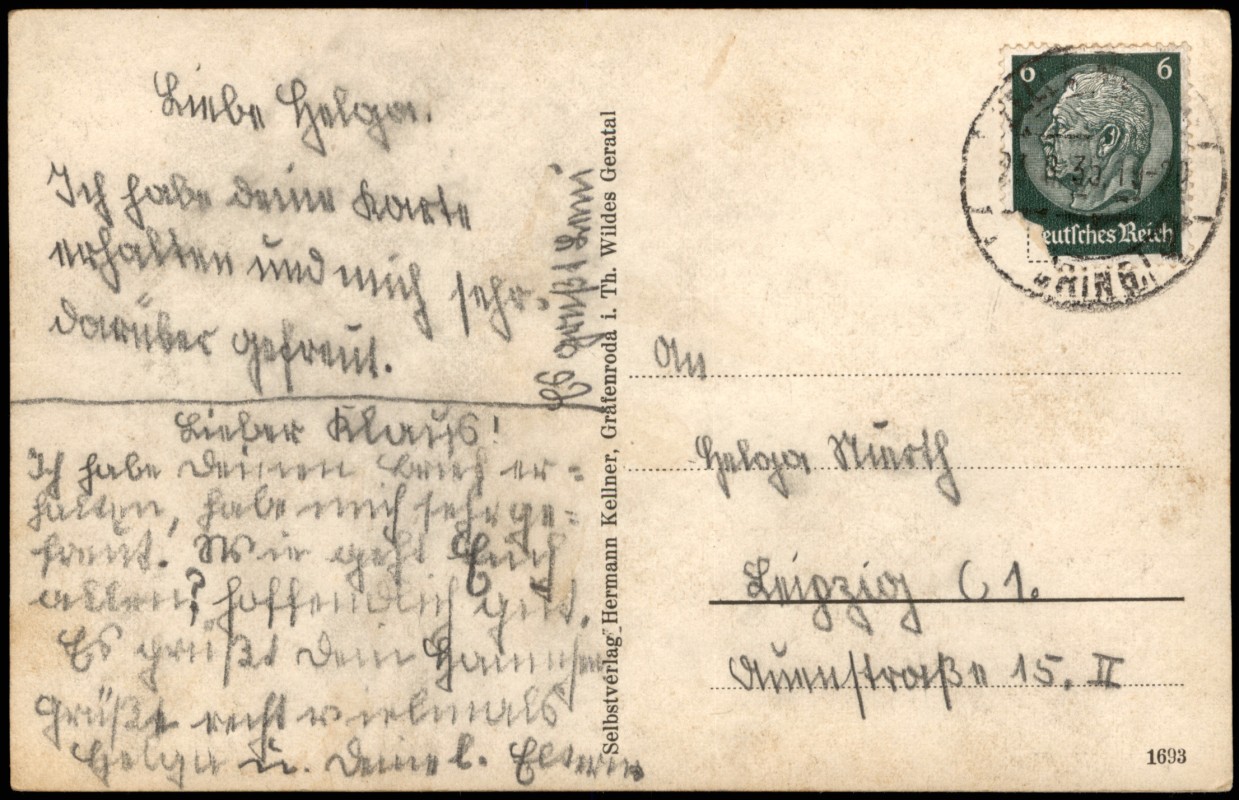 Liebe Helga.
Ich habe deine Karte
erhalten und mich sehr
darüber gefreut.
Es grüßt Dein
Lieber Klaus!
Ich habe Deinen Brief er=
halten, habe mich sehr ge=
freut. Wie geht Euch
allen? hoffendlich gut.
Es grüßt Dein
Grüße recht vielmals
Helga u. Deine l. Eltern
Selbstverlag Hermann Kellner, Gräfenroda i. Th. Wildes Geratal
6 6
Deutsches Reich
An
Helga
Leipzig C 1.
Auenstraße 15. II
1693